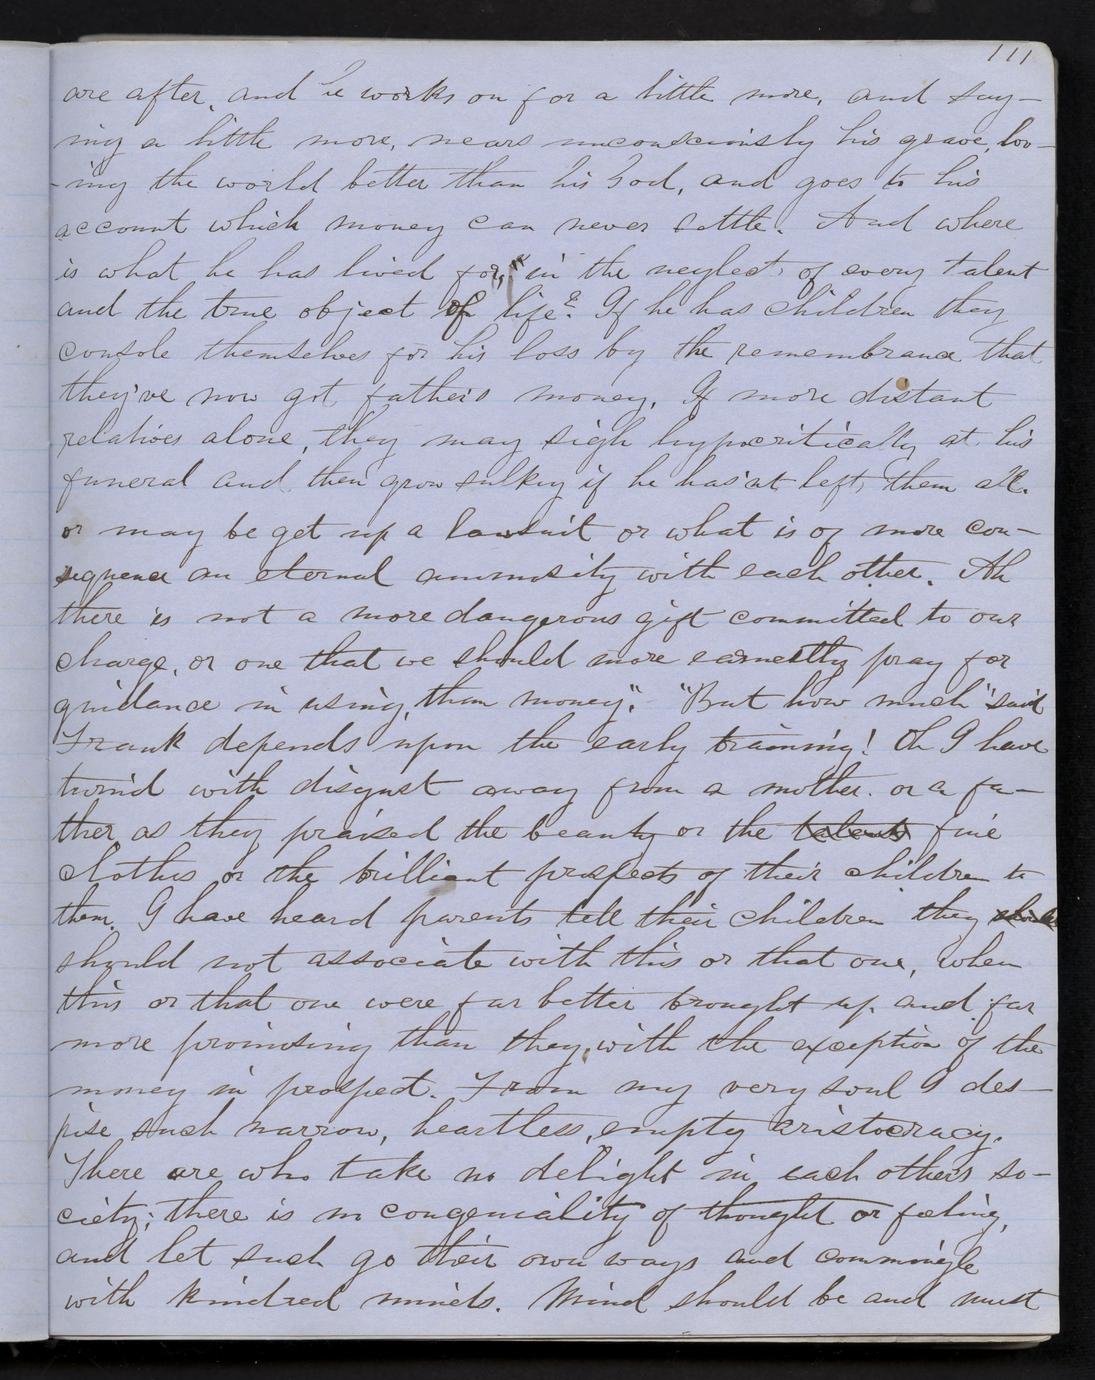 111
are after, and he works on for a little more, and say-
ing a little more, nears unconsciously his grave, lov-
-ing the world better than his God, and goes to his
account which money can never settle. And where
is what he has lived for, in the neglect, of every talent
and the true object of life? If he has children they
console themselves for his loss by the remembrance that
they've now got father's money. If more distant
relatives alone, they may sigh hypocritically at his
funeral and then grow sulky if he has'nt left them all.
or may be get up a lawsuit or what is of more con-
sequence an eternal animosity with each other. Ah
there is not a more dangerous gift committed to our
charge, or one that we should more earnestly pray for
guidance in using, than money". "But how much" said
Frank depends upon the early training! Oh I have
turn'd with disgust away from a mother. or a fa-
ther, as they praised the beauty or the talents fine
clothes or the brilliant prospects of their children to
them. I have heard parents tell their children they
should not associate with this or that one, when
this or that one were far better brought up. and far
more promising than they, with the exception of the
money in prospect. From my very soul I des-
pise such narrow, heartless, empty aristocracy.
There are who take no delight in each others so-
ciety; there is no congeniality of thought or feeling,
and let such go their own ways and commingle
with kindred minds. Mind should be and must